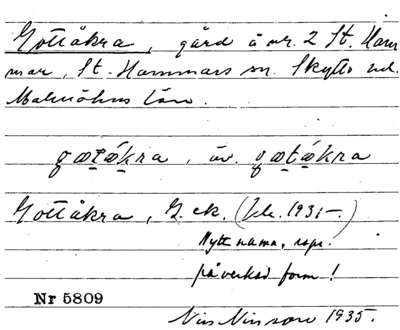 Gottåkra, gård å nr. 2 St. Ham-
mar, St. Hammars sn. Skytts hd.
Malmöhus län.
gɷtåkra, äv. gɷtåkra
Gottåkra, G. ek. (Jde. 1931-.)
Nytt namn, resp.
påverkad form!
Nr 5809
Nils Nilsson 1935.